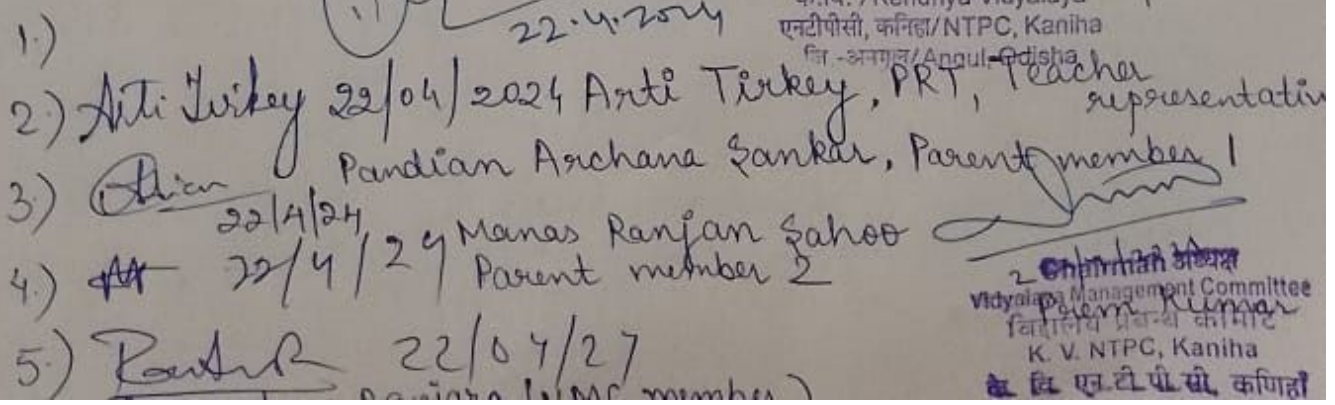 1.) 22.4.2024
एनटीपीसी, कनिहा/NTPC, Kaniha
जि.-अनगुल/Angul-Odisha
2.) Arti Tirkey 22/04/2024 Arti Tirkey, PRT, Teacher
representativ
3.) Pandian Archana Sankar, Parent member 1
22/4/24
4.) 22/4/24 Manas Ranjan Sahoo
Parent member 2
2 Chairman अध्यक्ष
Vidyalaya Management Committee
Prem Kumar
विद्यालय प्रबन्ध कमिटि
K. V. NTPC, Kaniha
के. वि. एन.टी.पी.सी, कणिहाँ
5.) 22/04/27
member)